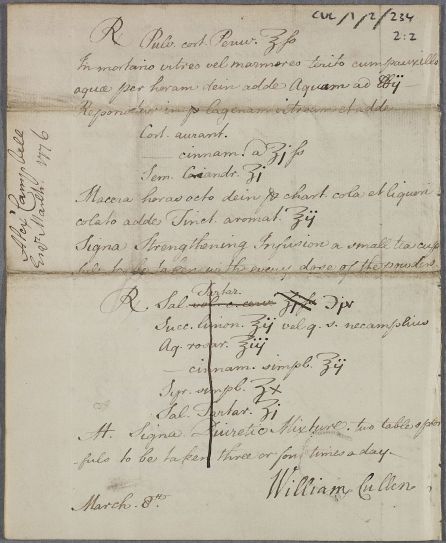 CUL/1/2/234
2:2
℞ Pulv. cort. Peruv. ℥ſs
In mortario vitreo vel marmoreo terito cum pauxillo
aquæ per horam dein adde Aquam ad ℔ij
Reponatur in lagenam vitream et adde
Cort. aurant.
— cinnam. a ʒjſs
Sem. Coriandr. ʒj
Macera horas octo dein p chart. cola et liquori
colato adde Tinct. aromat. ℥ij
Signa Strengthening Infusion a small tea cup
full to be taken with every dose of the powders.
℞. Sal. Tartar. ʒjſs ℈ps
Succ. limon. ℥ij vel q. s. ne amplius
Aq. rosar. ℥iij
— cinnam. simpl. ℥ij
Syr. simpl. ʒx
Sal. Tartar. ʒj
M. Signa Diuretic Mixture. two table spoon
fuls to be taken three or four times a day.
William Cullen
March. 8th.
Alexr Campbell
March 1776